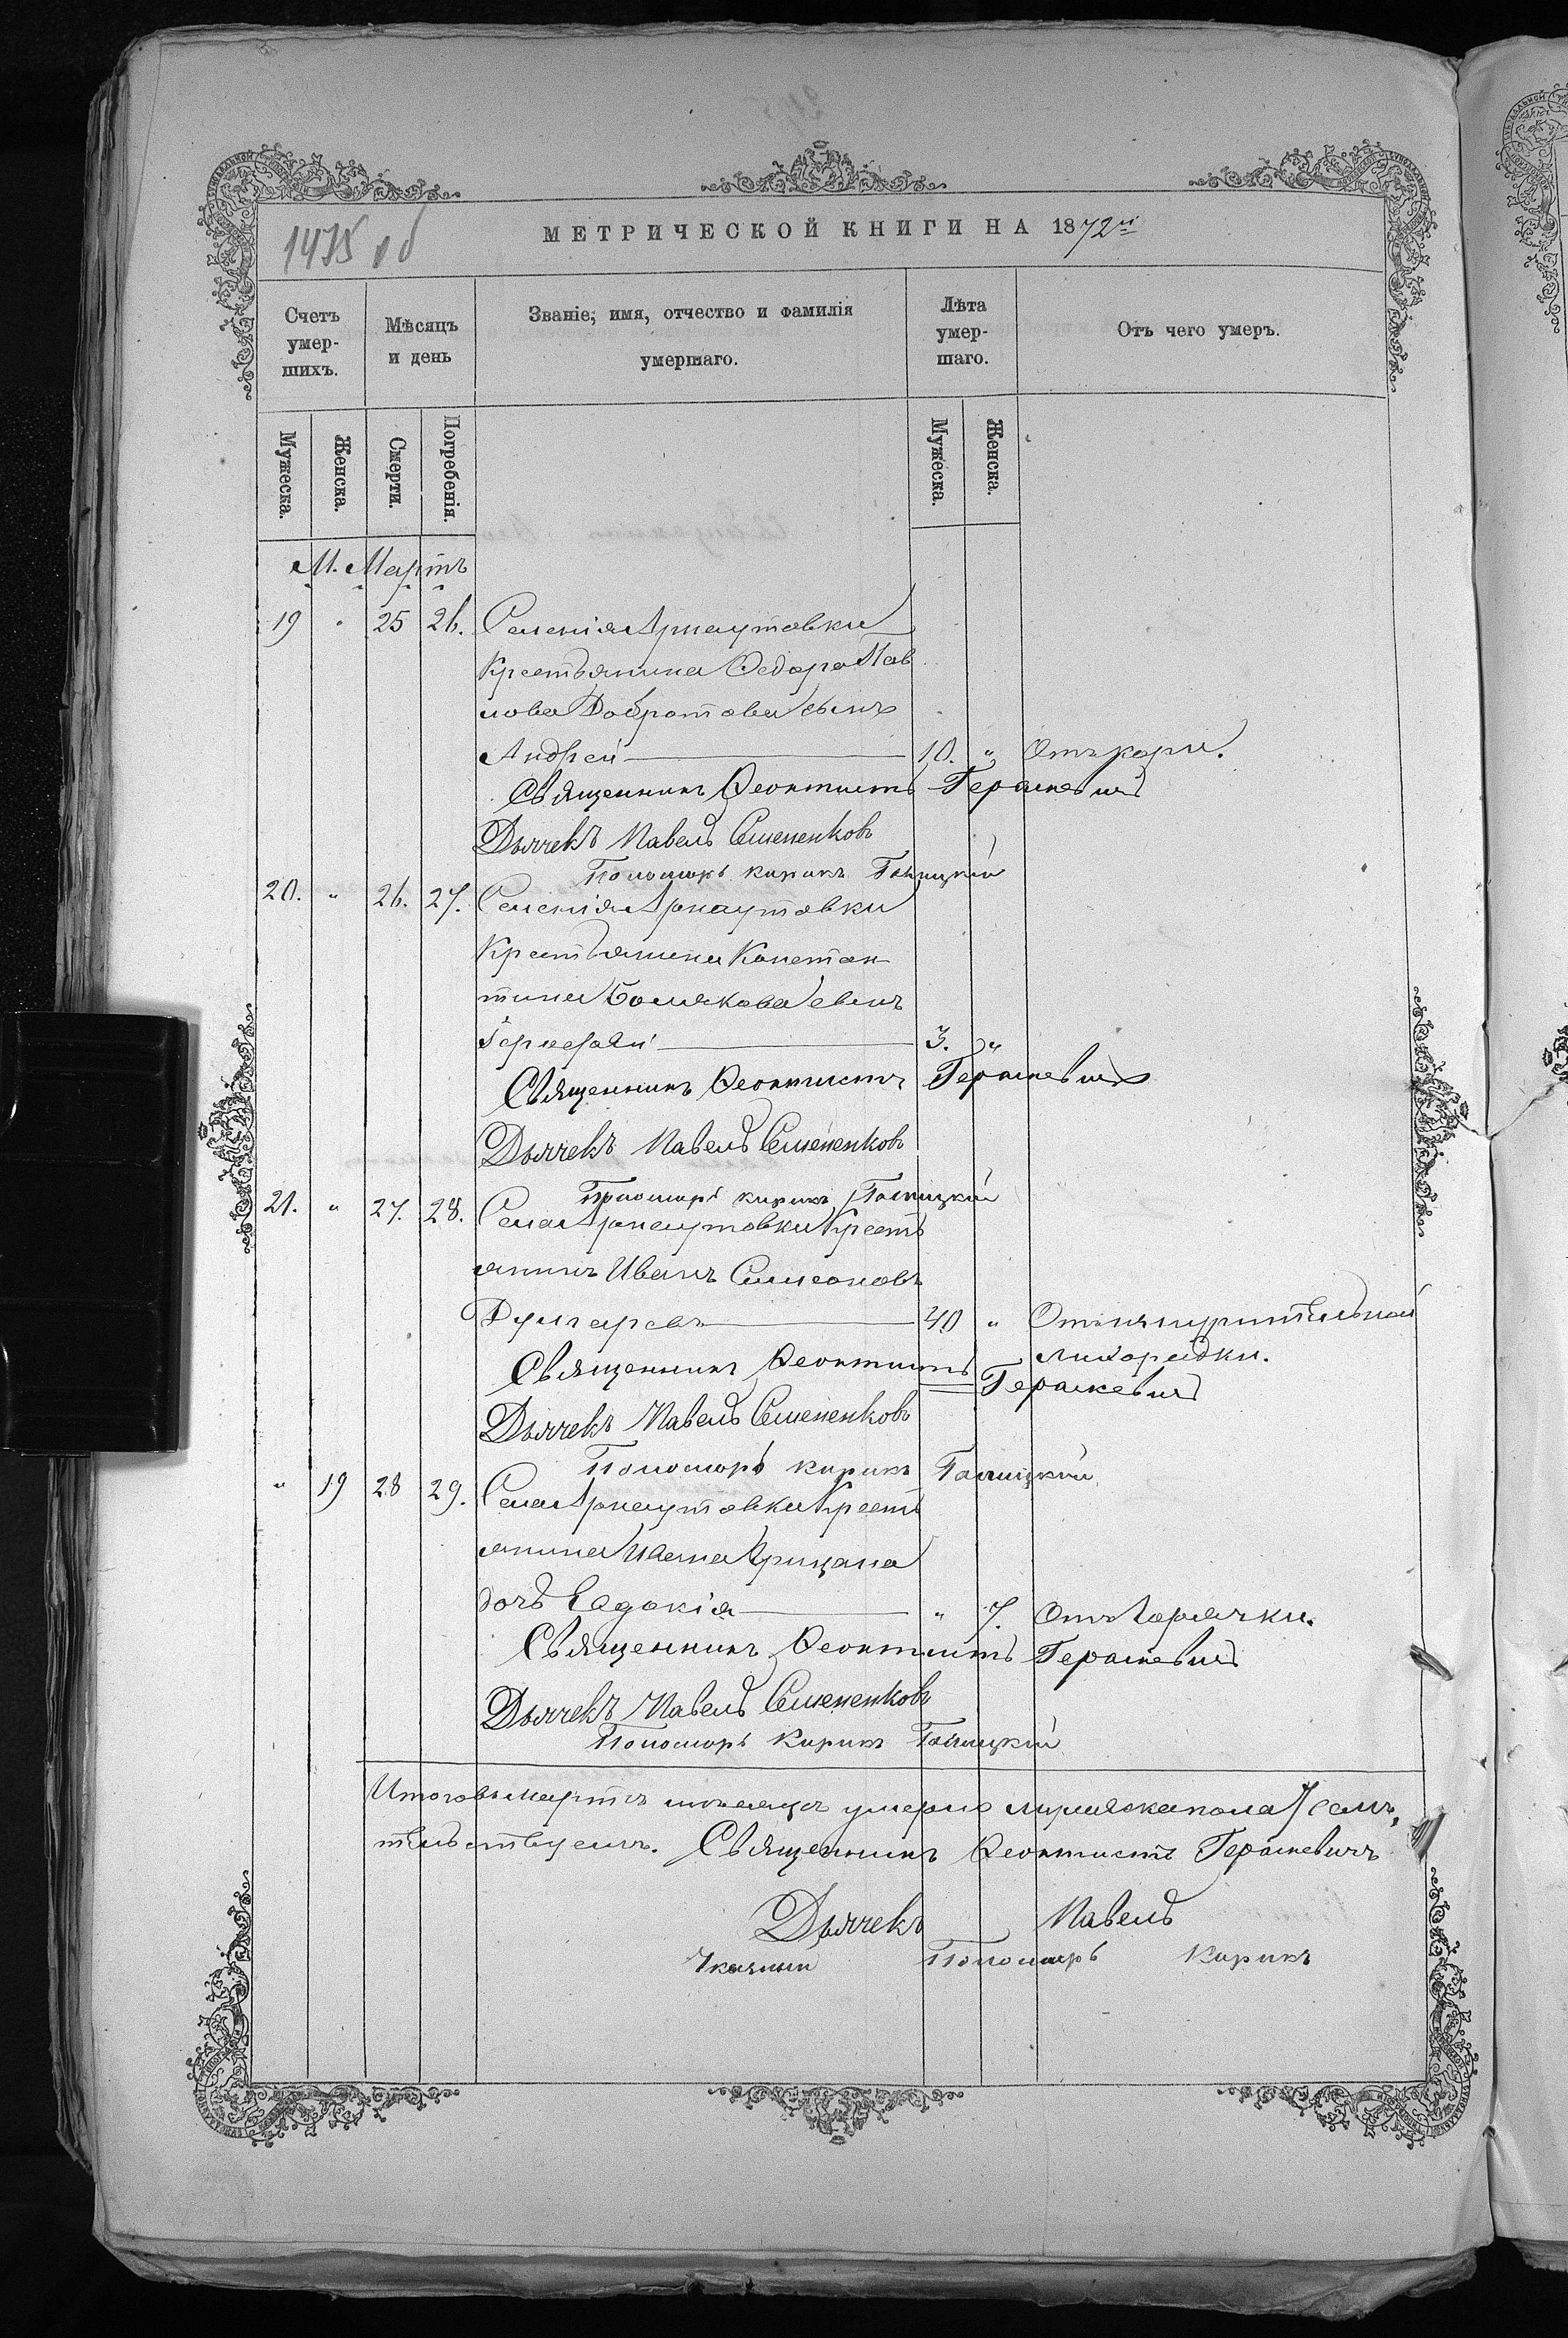 1475 об
МЕТРИЧЕСКОЙ КНИГИ НА 1872й
Счетъ умер-шихъ.
Мѣсяцъ и день
Званіе, имя, отчество и фамилія умершаго.
Лѣта умер-шаго.
Отъ чего умеръ.
Мужеска.
Женска.
Смерти.
Погребенія.
Мужеска.
Женска.
М. Мартъ
19 " 25 26. Селенія Арнаутовки
Крестьянина Ѳедора Пав
лова Добротова сынъ
Андрей 10. " Отъ кори.
Священникъ Ѳеоктистъ Гераневичъ
Дьячекъ Павелъ
Пономарь Кирикъ
20. " 26. 27. Селенія Арнаутовки
Крестьянина Констан
тина сынъ
3. "
Священникъ Ѳеоктистъ Гераневичъ
Дьячекъ Павелъ
Пономарь Кирикъ
21. " 27. 28. Села Арнаутовки Кресть
янинъ Иванъ Симеоновъ
40 " Отъ изнурительной
лихорадки.
Священникъ Ѳеоктистъ Гераневичъ
Дьячекъ Павелъ
Пономарь Кирикъ
" 19 28 29. Села Арнаутовки Кресть
янина Ивана
дочь Евдокія " 7. Отъ Горячки.
Священникъ Ѳеоктистъ Гераневичъ
Дьячекъ Павелъ
Пономарь Кирикъ
Итого въ мартѣ мѣсяцѣ умерло мужеска пола 7
Священникъ Ѳеоктистъ Гераневичъ
Дьячекъ Павелъ
Пономарь Кирикъ